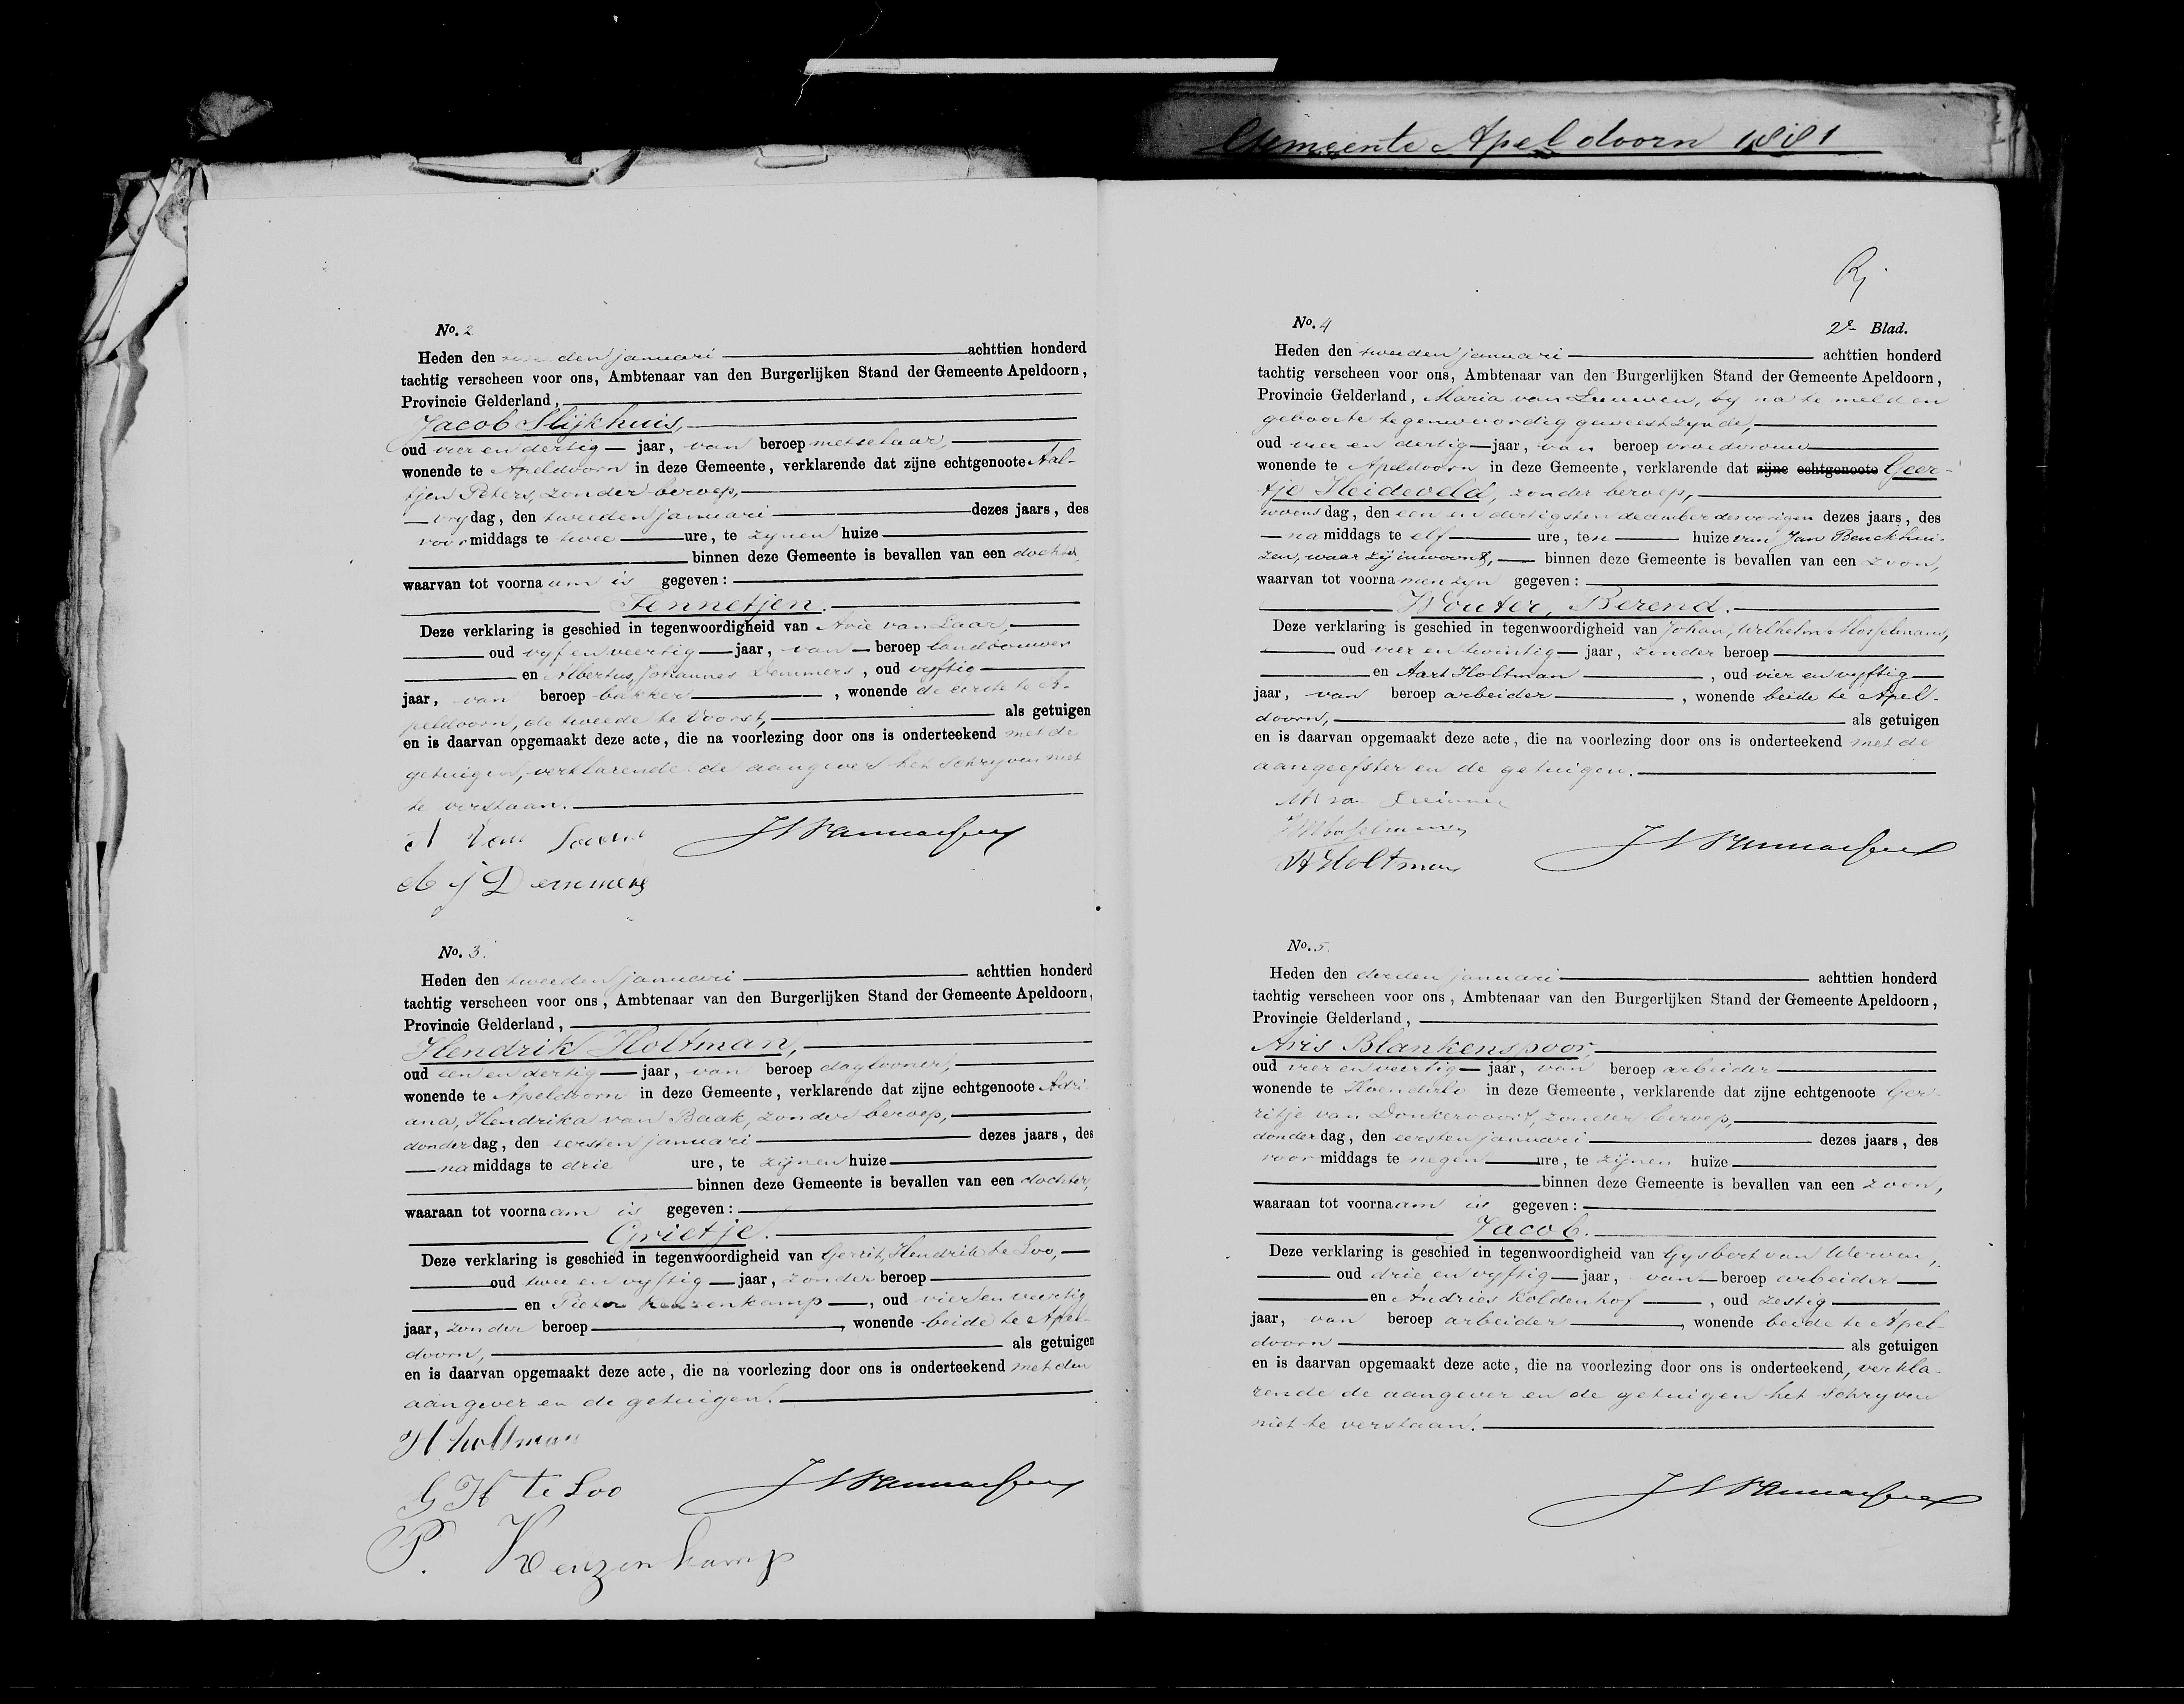 Gemeente Apeldoorn 1881
No. 2.
Heden den tweeden januari achttien honderd
tachtig verscheen voor ons, Ambtenaar van den Burgerlijken Stand der Gemeente Apeldoorn,
Provincie Gelderland,
Jacob Slijkhuis,
oud vier en dertig jaar, van beroep metselaar,
wonende te Apeldoorn in deze Gemeente, verklarende dat zijne echtgenoote Aal-
tjen Peters, zonder beroep,
vrydag, den tweeden januari dezes jaars, des
voormiddags te twee ure, te zynen huize
binnen deze Gemeente is bevallen van een dochter
waarvan tot voornaam is gegeven:
Fennetjen.
Deze verklaring is geschied in tegenwoordigheid van Arie van Laar,
oud vyf en veertig jaar, van beroep landbouwer
en Albertus, Johannes Demmers, oud vyftig
jaar, van beroep bakker, wonende de eerste te A-
peldoorn, de tweede te Voorst, als getuigen
en is daarvan opgemaakt deze acte, die na voorlezing door ons is onderteekend met de
getuigen, verklarende de aangever het schryven niet
te verstaan.
A van Laar
A J Demmers
No. 3.
Heden den tweeden januari achttien honderd
tachtig verscheen voor ons, Ambtenaar van den Burgerlijken Stand der Gemeente Apeldoorn,
Provincie Gelderland,
Hendrik Holtman,
oud een en dertig jaar, van beroep daglooner,
wonende te Apeldoorn in deze Gemeente, verklarende dat zijne echtgenoote Adri-
ana, Hendrika van Baak, zonder beroep,
donderdag, den eersten januari dezes jaars, des
namiddags te drie ure, te zijnen huize
binnen deze Gemeente is bevallen van een dochter,
waaraan tot voornaam is gegeven:
Grietje.
Deze verklaring is geschied in tegenwoordigheid van Gerrit, Hendrik te Loo,
oud twee en vyftig jaar, zonder beroep
en Pieter Keuzenkamp, oud vier en veertig
jaar, zonder beroep, wonende beide te Apel-
doorn, als getuigen
en is daarvan opgemaakt deze acte, die na voorlezing door ons is onderteekend met den
aangever en de getuigen.
H Holtman
G H te Loo
P. Keuzenkamp
No. 4
2e Blad.
Heden den tweeden januari achttien honderd
tachtig verscheen voor ons, Ambtenaar van den Burgerlijken Stand der Gemeente Apeldoorn,
Provincie Gelderland, Maria van Leeuwen, by na te melden
geboorte tegenwoordig geweest zynde,
oud vier en dertig jaar, van beroep vroedvrouw
wonende te Apeldoorn in deze Gemeente, verklarende dat zijne echtgenoote Geer-
tje Heideveld, zonder beroep,
woensdag, den een en dertigsten december des vorigen dezes jaars, des
namiddags te elf ure, ten huize van Jan Benckhui-
zen, waar zij inwoont, binnen deze Gemeente is bevallen van een zoon,
waarvan tot voornamen zyn gegeven:
Wouter, Berend.
Deze verklaring is geschied in tegenwoordigheid van Johan, Wilhelm Mosselmans,
oud vier en twintig jaar, zonder beroep
en Aart Holtman, oud vier en vyftig
jaar, van beroep arbeider, wonende beide te Apel-
doorn, als getuigen
en is daarvan opgemaakt deze acte, die na voorlezing door ons is onderteekend met de
aangeefster en de getuigen.
M van Leeuwen
JW Mosselmans
A Holtman
No. 5.
Heden den derden januari achttien honderd
tachtig verscheen voor ons, Ambtenaar van den Burgerlijken Stand der Gemeente Apeldoorn,
Provincie Gelderland,
Aris Blankenspoor,
oud vier en veertig jaar, van beroep arbeider
wonende te Hoenderlo in deze Gemeente, verklarende dat zijne echtgenoote Ger-
ritje van Donkervoort, zonder beroep,
donderdag, den eersten januari dezes jaars, des
voormiddags te negen ure, te zijnen huize
binnen deze Gemeente is bevallen van een zoon,
waaraan tot voornaam is gegeven:
Jacob.
Deze verklaring is geschied in tegenwoordigheid van Gysbert van Werven,
oud drie en vyftig jaar, van beroep arbeider
en Andries Koldenhof, oud zestig
jaar, van beroep arbeider, wonende beide te Apel-
doorn als getuigen
en is daarvan opgemaakt deze acte, die na voorlezing door ons is onderteekend, verkla-
rende de aangever en de getuigen het schryven
niet te verstaan.